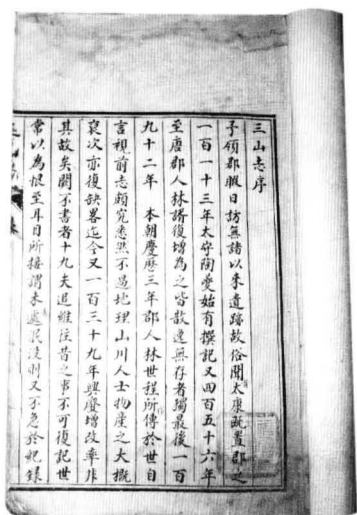 三山志序
予領郡暇日訪無諸以来遺跡故俗聞太康既置郡之
一百一十三年太守陶夔始有撰記又四百五十六年
至唐郡人林諝復增為之皆散逸無存者獨最後一百
九十二年　本朝慶曆三年郡人林世程所傳於世自
言視前志頗究悉然不過地理山川人士物產之大概
裒次亦復缺畧迄今又一百三十九年興廢增改率非
其故矣闕不書者十九夫追維往昔之事不可復記世
常以為恨至耳目所接謂未遽泯沒則又不急於紀録